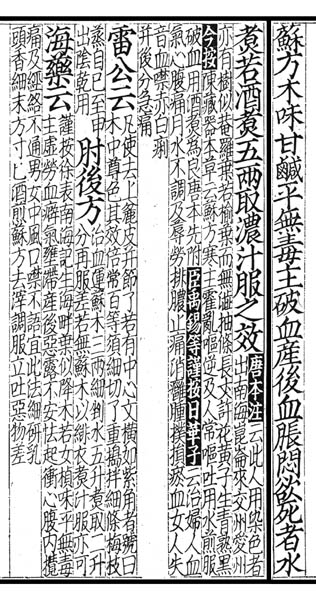 蘇方木味甘鹹平無毒主破血產後血脹悶欲死者水
煮若酒煮五兩取濃汁服之效
唐本注云此人用染色者
自南海崑崙來交州愛州
亦有樹似菴羅葉若榆葉而無澀抽條長丈許花黃子生青熟黑
今按陳藏器本草云蘇方寒主霍亂嘔逆及人常嘔吐用水煎服
破血用酒煮為良唐本先附臣禹錫等謹按日華子云治婦人血
氣心腹痛月水不調及蓐勞排膿止痛消癰腫撲損瘀血女人失
音血噤赤白痢
并後分急痛
雷公云
凡使去上麄皮并節了若有中心文橫如紫角者號曰
木中尊色其效倍常百等須細剉了重搗拌細條梅枝
蒸自巳至申
出陰乾用
肘後方
治血運蘇木三兩細剉水五升煮取二升
分再服差若無蘇木以緋衣煮汁服亦可
海藥云
謹按徐表南海記生海畔葉似絳木若女楨味平無毒
主虛勞血癖氣壅滯產後惡露不安怯起衝心腹內攪
痛及經絡不通男女中風口噤不語宜此法細研乳
頭香細末方寸匕酒煎蘇方去滓調服立吐惡物差